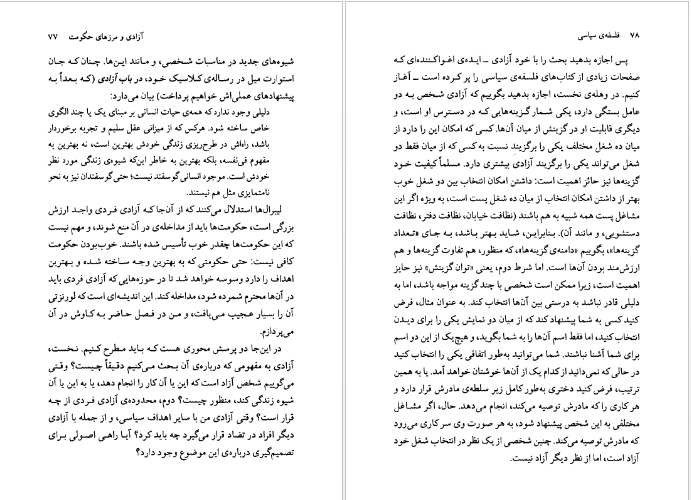 آزادی و مرزهای حکومت ۷۷
شیوه‌های جدید در مناسبات شخصی، و مانند این‌ها. چنان که جان
استوارت میل در رساله‌ی کلاسیک خود، در باب آزادی (که بعداً به
پیشنهادهای عملی‌اش خواهیم پرداخت) بیان می‌دارد:
دلیلی وجود ندارد که همه‌ی حیات انسانی بر مبنای یک یا چند الگوی
خاص ساخته شود. هرکس که از میزانی عقل سلیم و تجربه برخوردار
باشد، راه‌اش در طرح‌ریزی زندگی خودش بهترین است، نه بهترین به
مفهوم فی‌نفسه، بلکه بهترین به خاطر این‌که شیوه‌ی زندگی مورد نظر
خودش است. موجود انسانی گوسفند نیست؛ حتی گوسفندان نیز به نحو
نامتمایزی مثل هم نیستند.
لیبرال‌ها استدلال می‌کنند که از آن‌جا که آزادی فردی واجد ارزش
بزرگی است، حکومت‌ها باید از مداخله‌ی در آن منع شوند، و مهم نیست
که این حکومت‌ها چقدر خوب تأسیس شده باشند. خوب‌بودن حکومت
کافی نیست: حتی حکومتی که به بهترین وجه ساخته شده و بهترین
اهداف را دارد وسوسه خواهد شد تا در حوزه‌هایی که آزادی فردی باید
در آن‌ها محترم شمرده شود، مداخله کند. این اندیشه‌ای است که لورنزتی
آن را بسیار عجیب می‌یافت، و من در فصل حاضر به کاوش در آن
می‌پردازم.
در این‌جا دو پرسش محوری هست که باید مطرح کنیم. نخست،
آزادی به مفهومی که درباره‌ی آن بحث می‌کنیم دقیقاً چیست؟ وقتی
می‌گوییم شخص آزاد است که این یا آن کار را انجام دهد، یا به این یا آن
شیوه زندگی کند، منظور چیست؟ دوم، محدوده‌ی آزادی فردی از چه
قرار است؟ وقتی آزادی من با سایر اهداف سیاسی، و از جمله با آزادی
دیگر افراد در تضاد قرار می‌گیرد چه باید کرد؟ آیا راهی اصولی برای
تصمیم‌گیری درباره‌ی این موضوع وجود دارد؟
۷۸ فلسفه‌ی سیاسی
پس اجازه بدهید بحث را با خود آزادی ـ ایده‌ی اغواکننده‌ای که
صفحات زیادی از کتاب‌های فلسفه‌ی سیاسی را پر کرده است ـ آغاز
کنیم. در وهله‌ی نخست، اجازه بدهید بگوییم که آزادی شخص به دو
عامل بستگی دارد، یکی شمار گزینه‌هایی که در دسترس او است، و
دیگری قابلیت او در گزینش از میان آن‌ها. کسی که امکان این را دارد از
میان ده شغل مختلف یکی را برگزیند نسبت به کسی که از میان فقط دو
شغل می‌تواند یکی را برگزیند آزادی بیشتری دارد. مسلماً کیفیت خود
گزینه‌ها نیز حائز اهمیت است: داشتن امکان انتخاب بین دو شغل خوب
بهتر از داشتن امکان انتخاب از میان ده شغل پست است، به ویژه اگر این
مشاغل پست همه شبیه به هم باشند (نظافت خیابان، نظافت دفتر، نظافت
دستشویی، و مانند آن). بنابراین، شاید بهتر باشد، به جای «تعداد
گزینه‌ها»، بگوییم «دامنه‌ی گزینه‌ها»، که منظور، هم تفاوت گزینه‌ها و هم
ارزش‌مند بودن آن‌ها است. اما شرط دوم، یعنی «توان گزینش» نیز حایز
اهمیت است، زیرا ممکن است شخصی با چند گزینه مواجه باشد، اما به
دلیلی قادر نباشد به درستی بین آن‌ها انتخاب کند. به عنوان مثال، فرض
کنید کسی به شما پیشنهاد کند که از میان دو نمایش یکی را برای دیدن
انتخاب کنید، اما فقط اسم آن‌ها را به شما بگوید، و هیچ‌یک از این دو اسم
برای شما آشنا نباشند. شما می‌توانید به‌طور اتفاقی یکی را انتخاب کنید
در حالی که نمی‌دانید از کدام یک از آن‌ها خوشتان خواهد آمد. یا به همین
ترتیب، فرض کنید دختری به‌طور کامل زیر سلطه‌ی مادرش قرار دارد و
هر کاری را که مادرش توصیه می‌کند، انجام می‌دهد. حال، اگر مشاغل
مختلفی به این شخص پیشنهاد شود، به هر صورت وی سر کاری می‌رود
که مادرش توصیه می‌کند. چنین شخصی از یک نظر در انتخاب شغل خود
آزاد است، اما از نظر دیگر آزاد نیست.